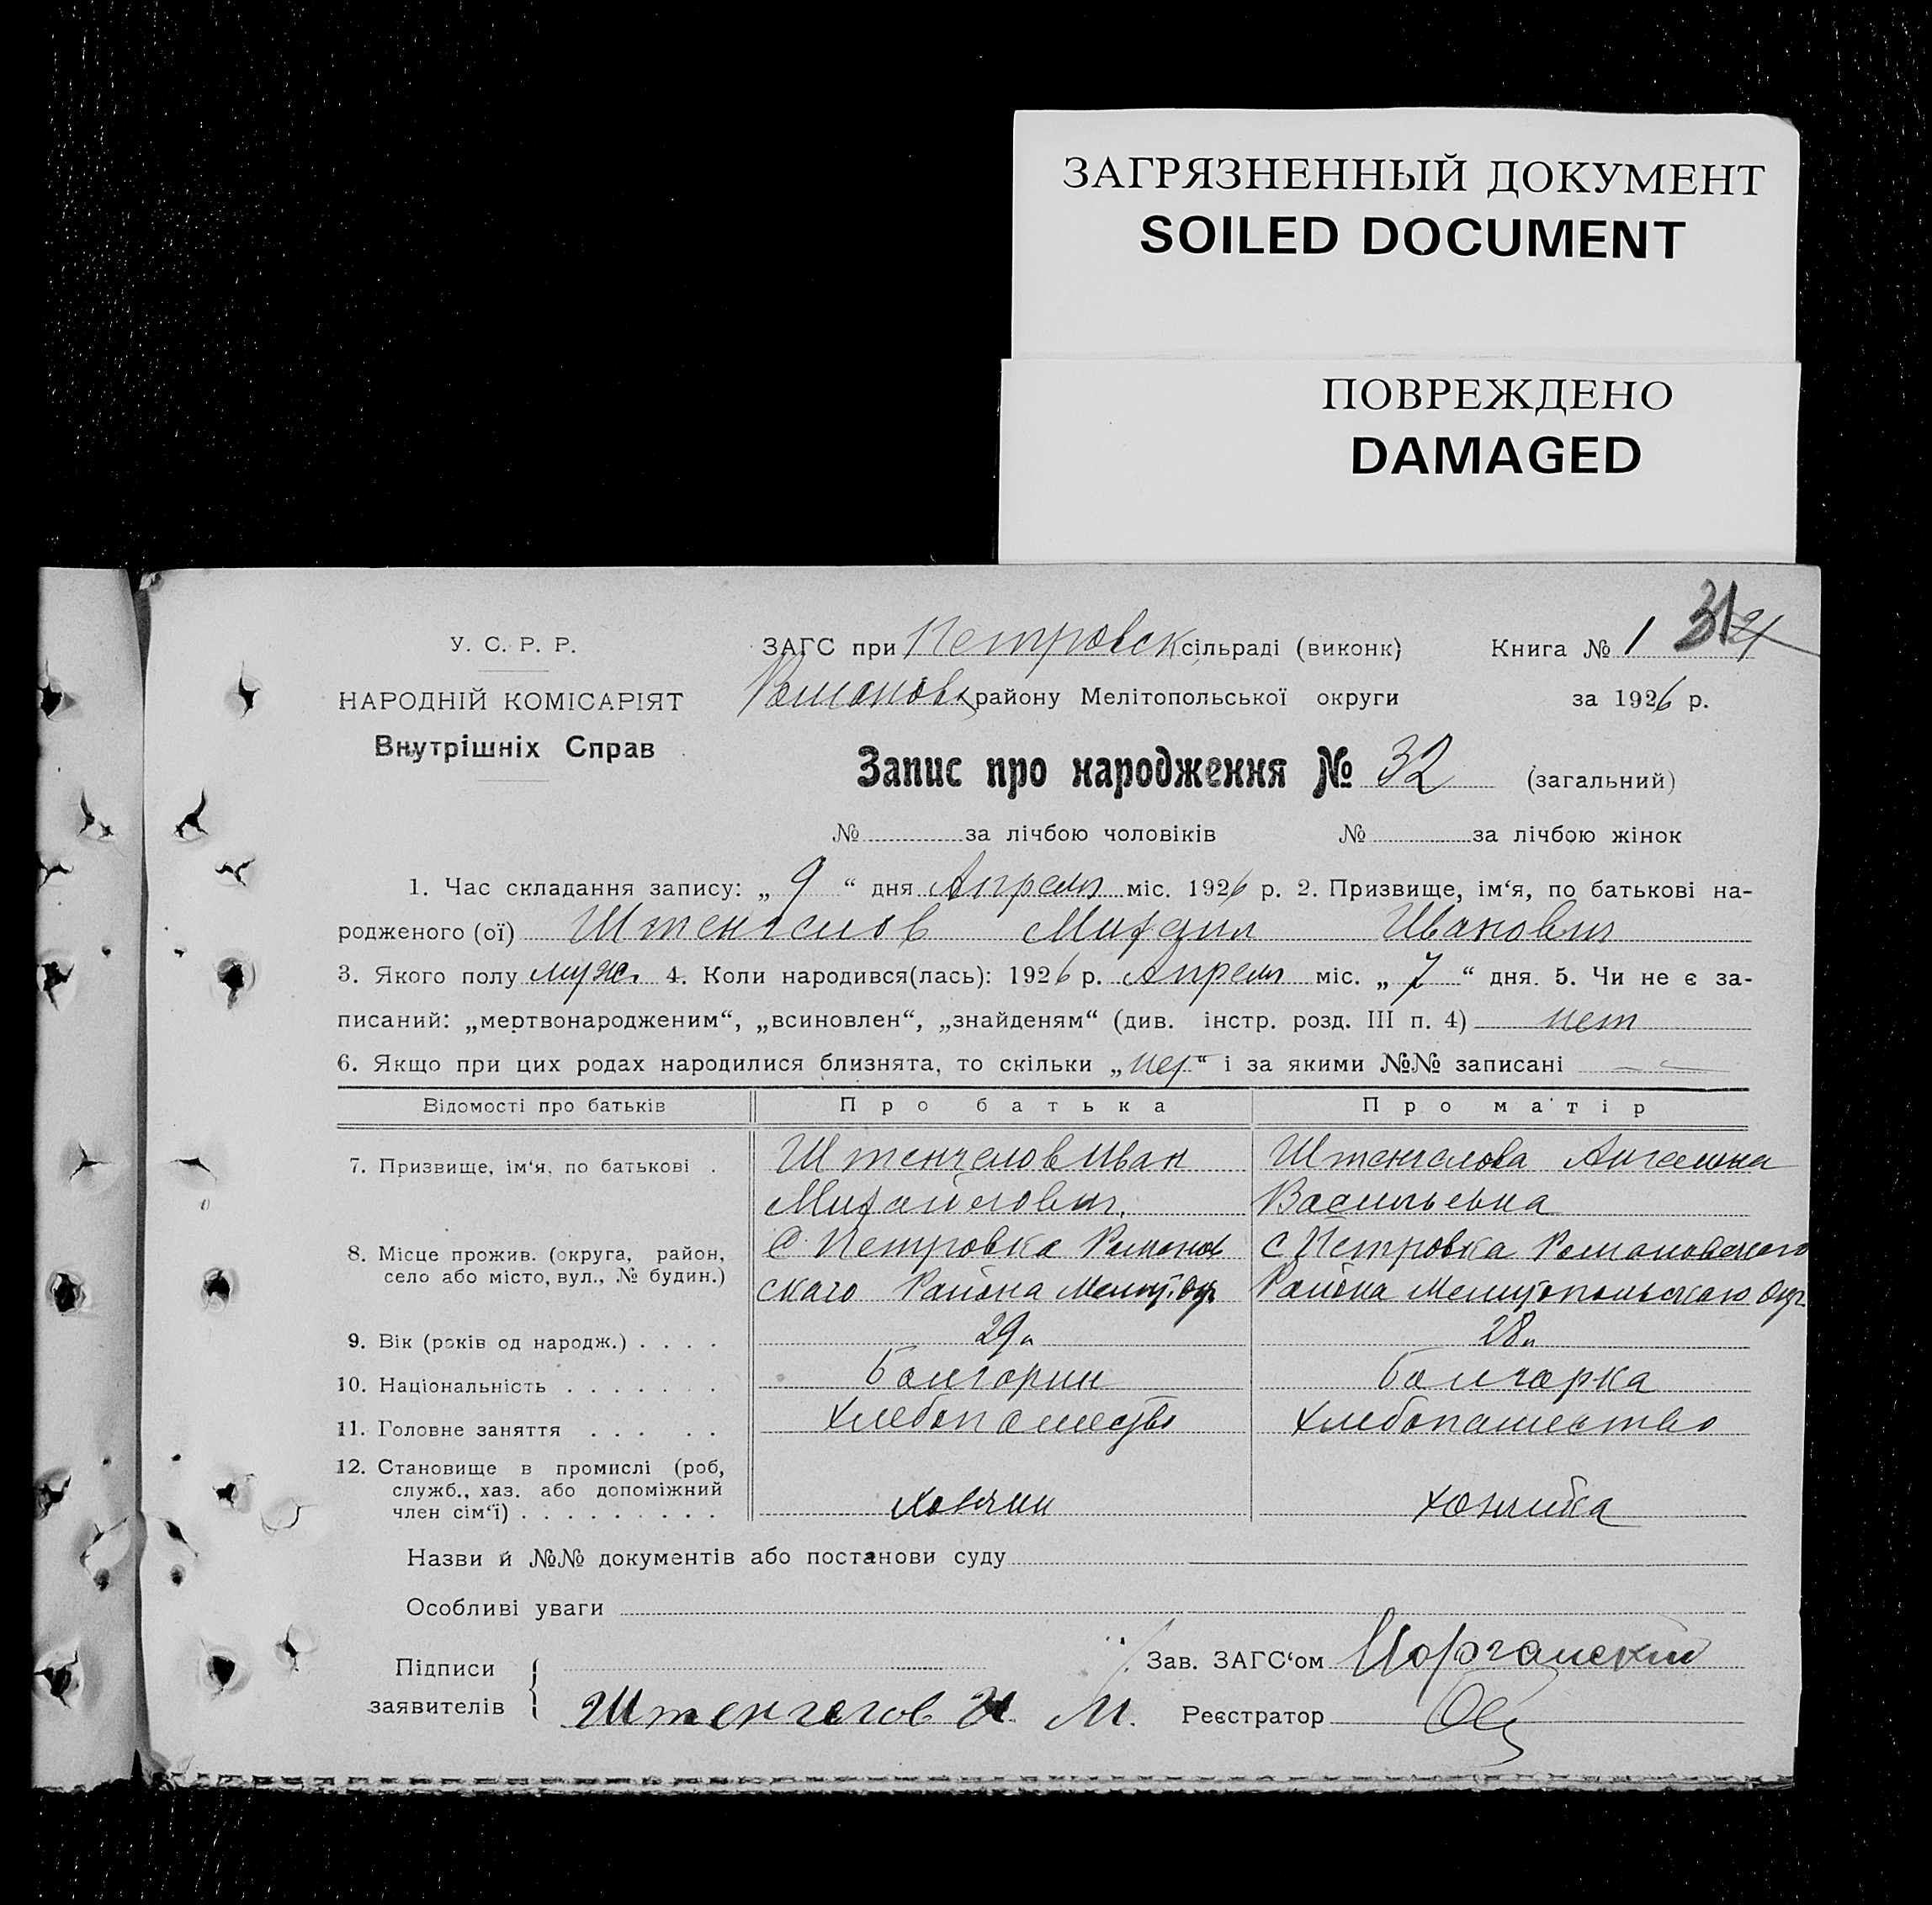 ЗАГРЯЗНЕННЫЙ ДОКУМЕНТ
SOILED DOCUMENT
ПОВРЕЖДЕНО
DAMAGED
У. С. Р. Р.
НАРОДНІЙ КОМІСАРІЯТ
Внутрішніх Справ
ЗАГС при Петровск сільраді (виконк) Книга № 1 31
Романовск району Мелітопольської округи за 1926 р.
Запис про народження № 32 (загальний)
№ за лічбою чоловіків № за лічбою жінок
1. Час складання запису: „ 9 “ дня Апреля міс. 1926 р. 2. Призвище, ім‘я, по батькові на-
родженого (ої) Штенгелов Михаил Иванович
3. Якого полу муж. 4. Коли народився(лась): 1926 р. Апреля міс. „ 7 “ дня. 5. Чи не є за-
писаний: „мертвонародженим“, „всиновлен“, „знайденям“ (див. інстр. розд. III п. 4) нет
6. Якщо при цих родах народилися близнята, то скільки „нет“ і за якими №№ записані
Відомості про батьків Про батька Про матір
7. Призвище, ім‘я, по батькові . Штенгелов Иван Штенгелова Ангелина
Михайлович. Васильевна
8. Місце прожив. (округа, район, С. Петровка Романов С Петровка Романовского
село або місто, вул., № будин.) скаго Района Мелит. Окр Района Мелитопольскаго Окр
9. Вік (років од народж.) . . . . 29 л 28 л
10. Національність . . . . . . . Болгарин Болгарка
11. Головне заняття . . . . . Хлебопашество Хлебопашество
12. Становище в промислі (роб,
служб., хаз. або допоміжний
член сім‘ї) . . . . . . . . . Хозяин Хозяйка
Назви й №№ документів або постанови суду
Особливі уваги
Підписи Зав. ЗАГС‘ом
заявителів Штенгелов И. М. Реєстратор